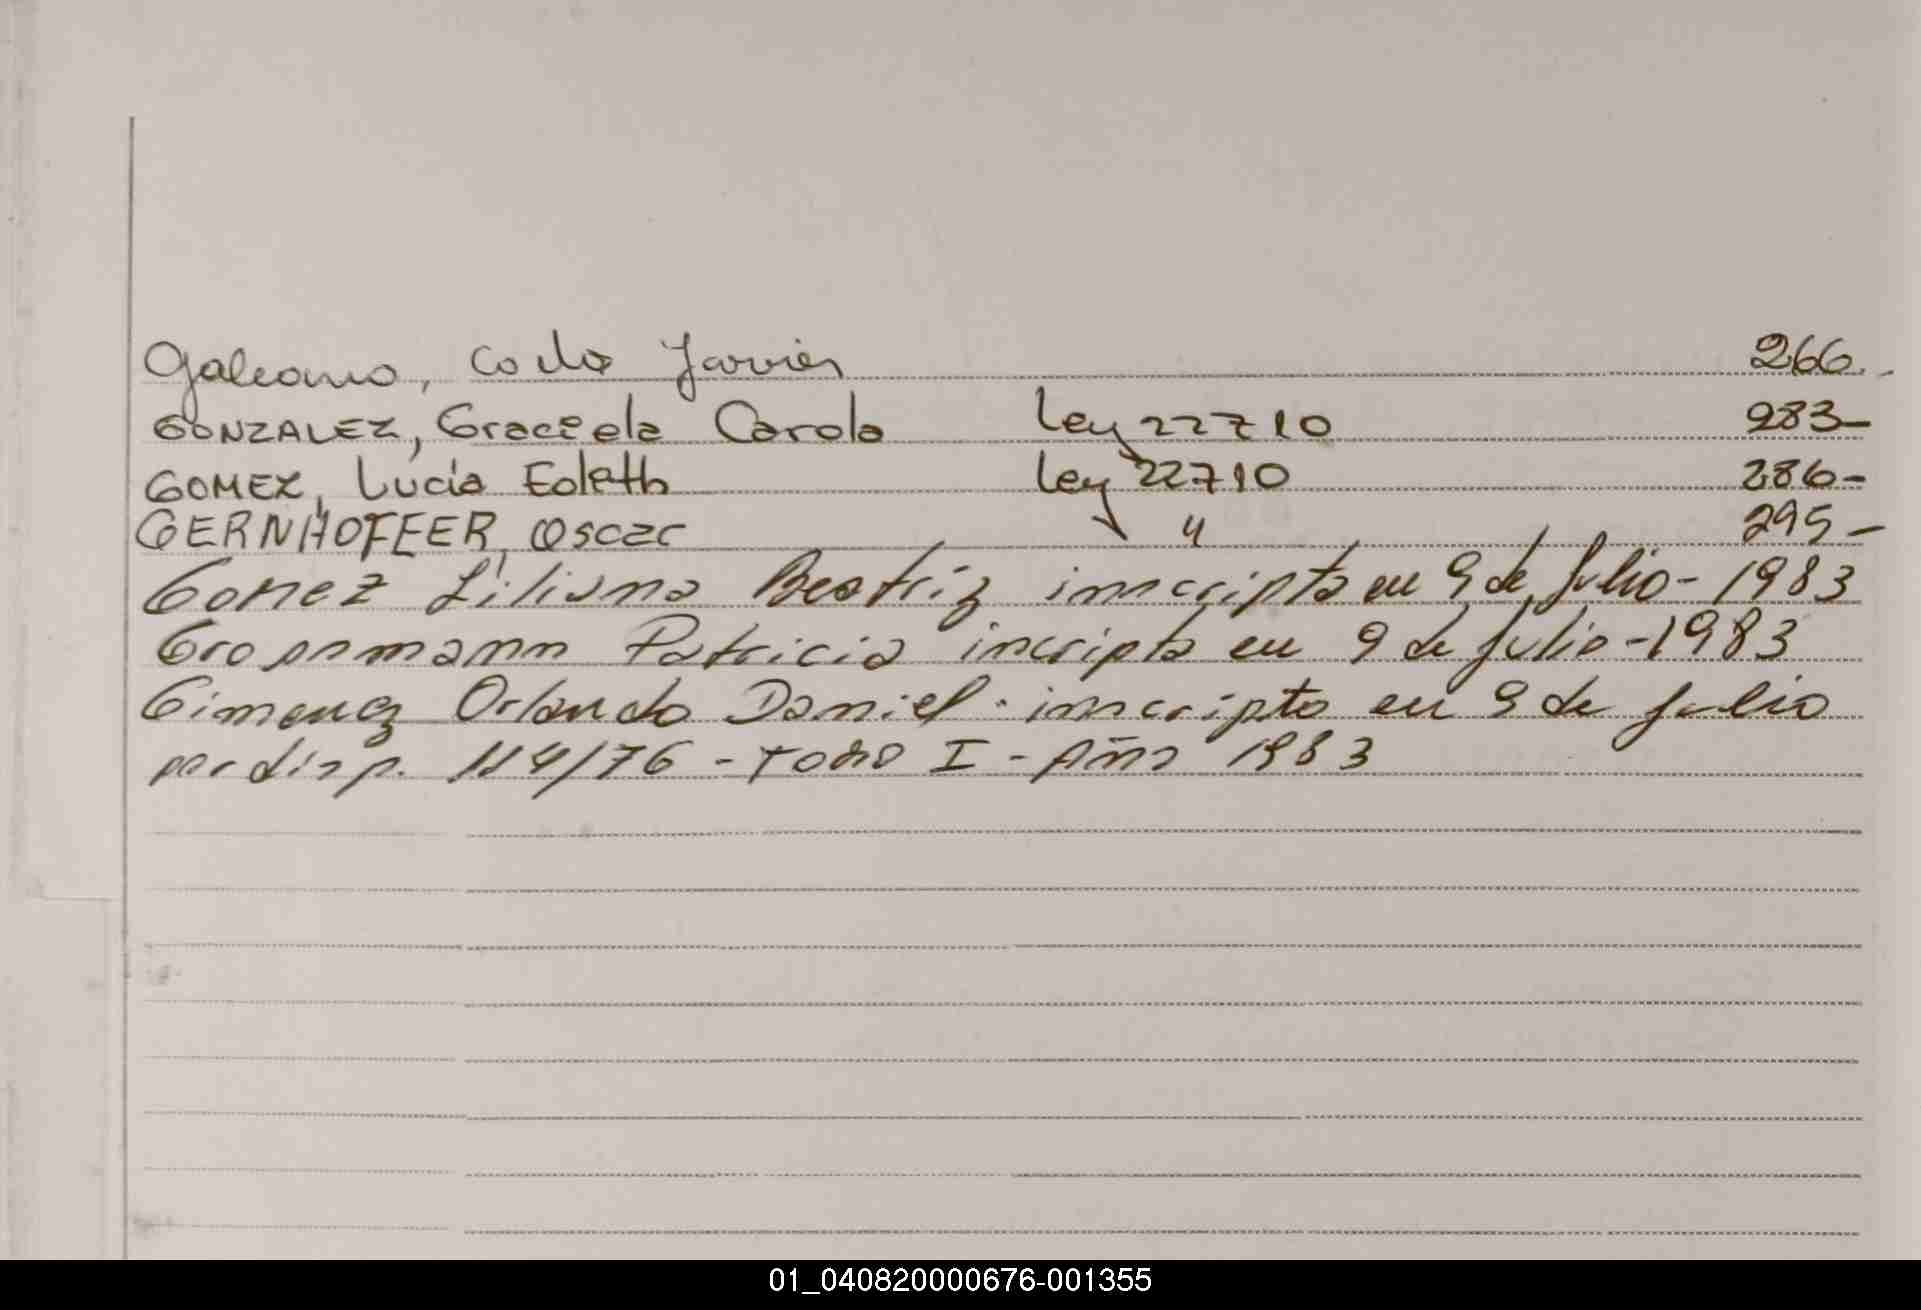 Galeano, Carlos Javier 266.-
GONZALEZ, Graciela Carola Ley 22710 283-
GOMEZ, Lucia Edith Ley 22710 286-
GERNHOFFER, Oscar " 295-
Gomez Liliana Beatriz inscripta en 9 de Julio - 1983
Grossmann Patricia incripta en 9 de Julio - 1983
Gimenez Orlando Daniel - inscripto en 9 de Julio
por disp. 114/76 - Tomo I - Año 1983
01_040820000676-001355